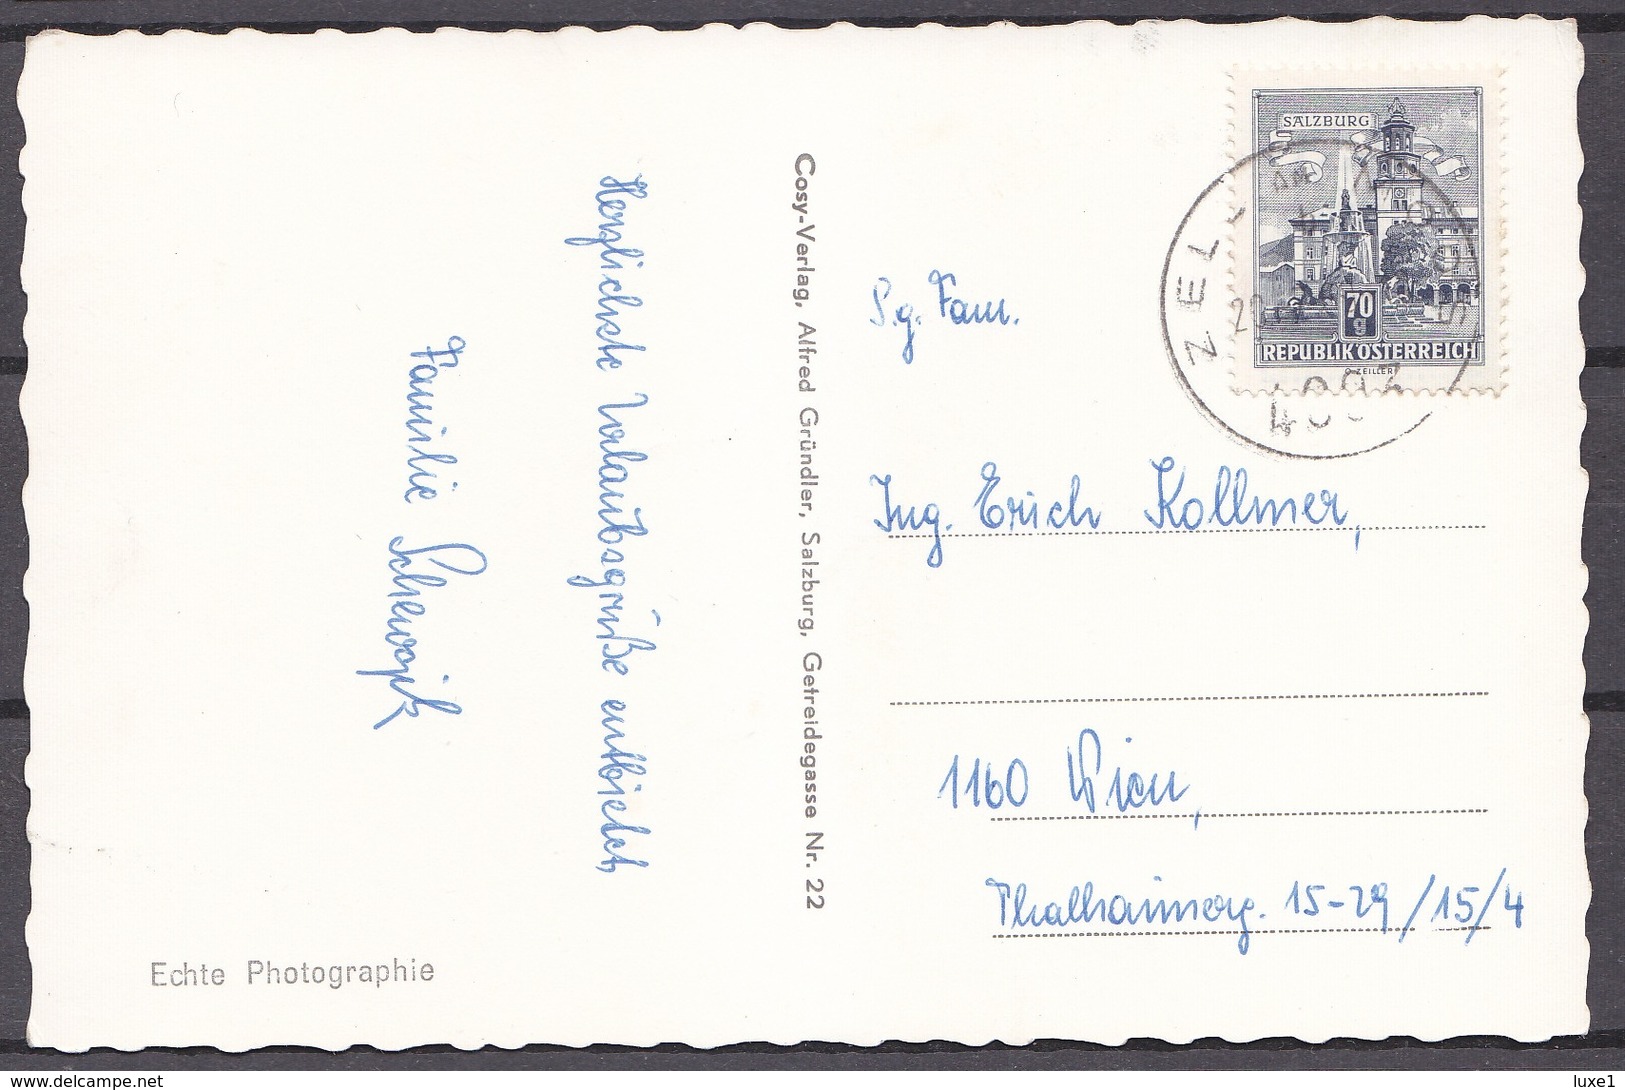 Herzlichste Urlaubsgrüße entbietet,
Familie
Echte Photographie
Cosy-Verlag, Alfred Gründler, Salzburg, Getreidegasse Nr. 22
SALZBURG
70
g
REPUBLIK ÖSTERREICH
O. ZEILLER
ZELL
S.g. Fam.
Ing. Erich Kollmer,
1160 Wien,
Thalhaimerg. 15-29/15/4
delcampe.net
luxe1